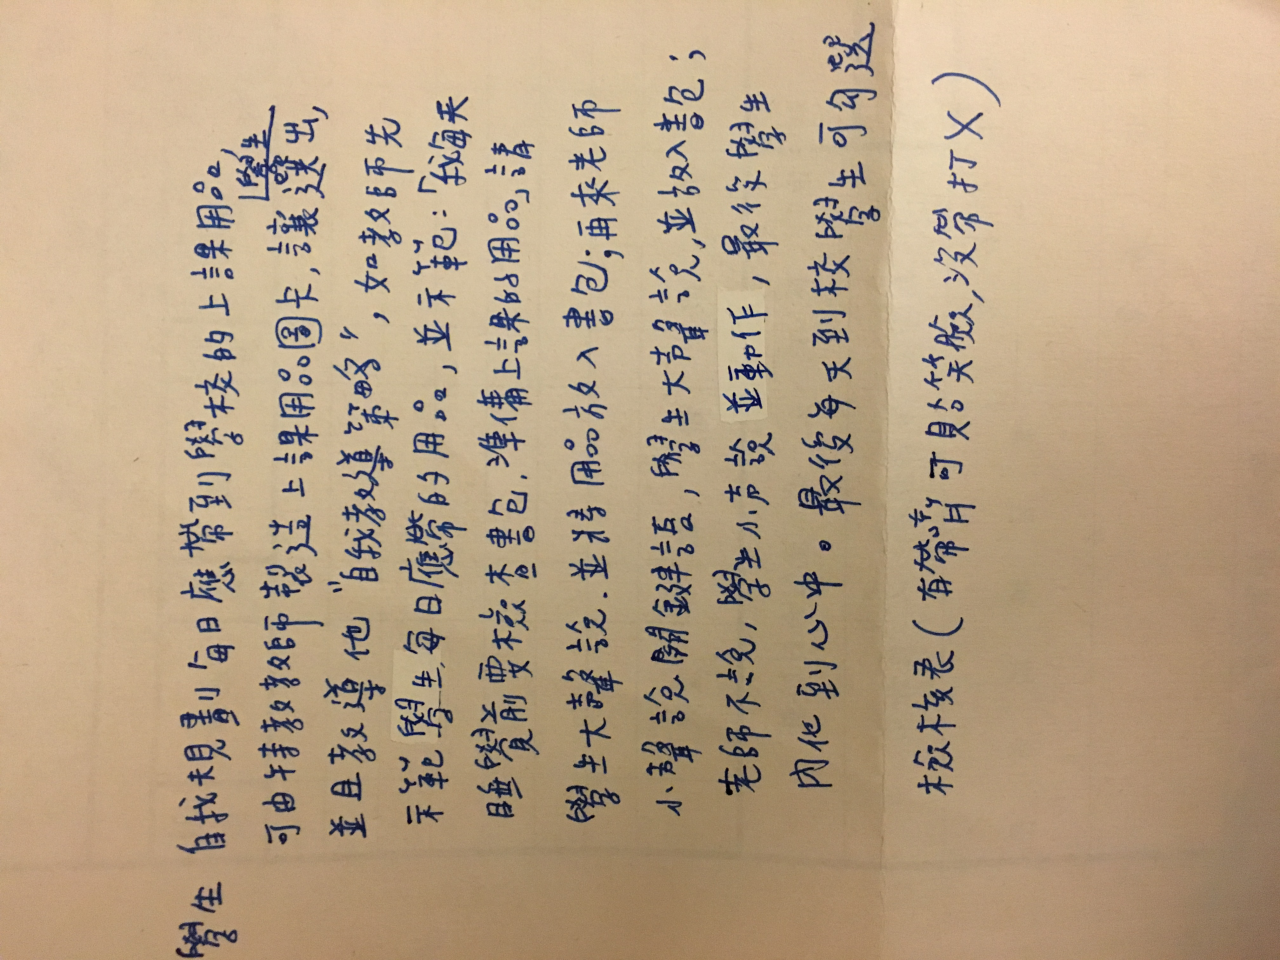 學生 自我規劃每日應帶到學校的上課用品,
可由特教教師製造上課用品圖卡,讓學生選出,
並且教導他"自我教導策略",如教師先
示範學生每日應帶的用品,並示範:「我每天
睡覺前要檢查書包,準備上課的用品」請
學生大聲說.並將用品放入書包;再來老師
小聲說關鍵語,學生大聲說,並放入書包;
老師不說,學生小声說並動作,最後學生
內化到心中。最後每天到校學生可勾選
檢核表(有帶者可貼笑臉,沒帶打X)